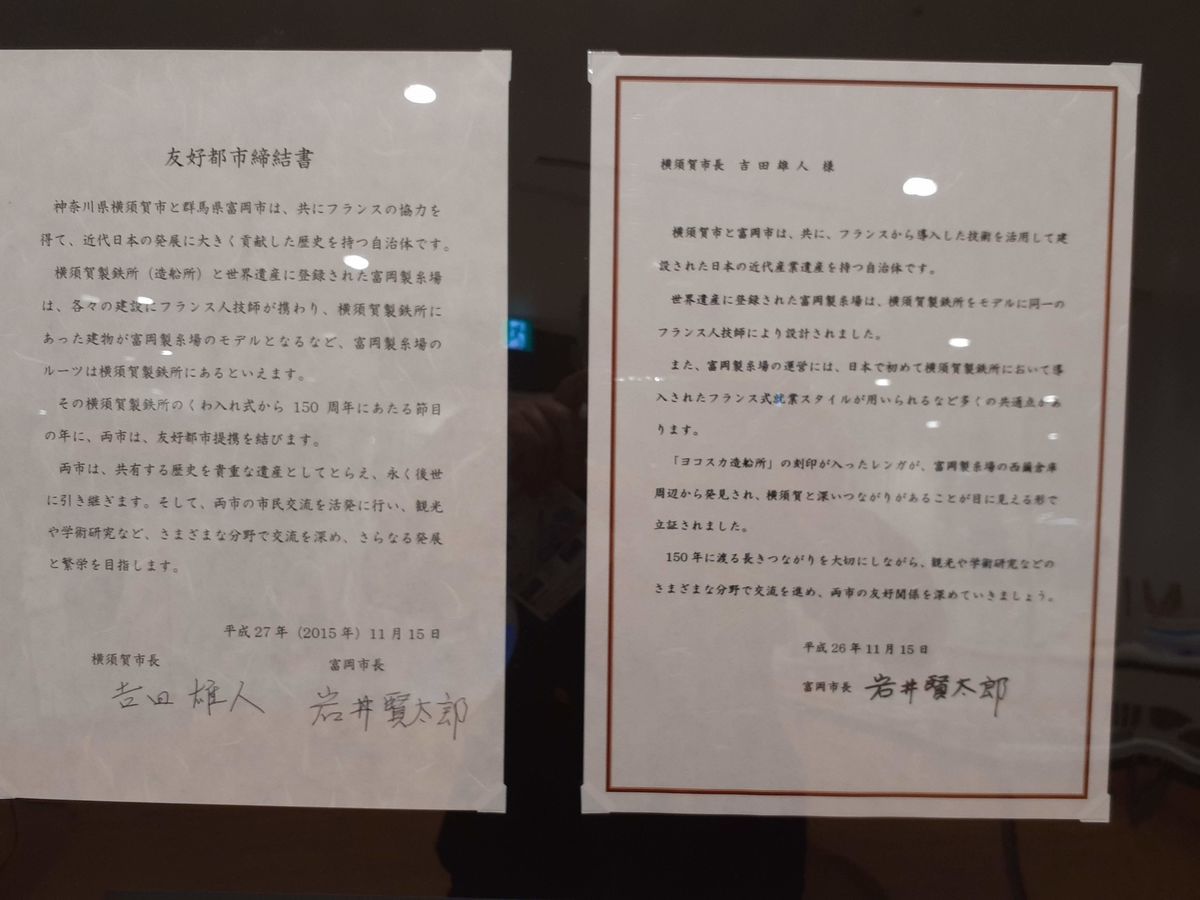 友好都市締結書
神奈川県横須賀市と群馬県富岡市は、共にフランスの協力を
得て、近代日本の発展に大きく貢献した歴史を持つ自治体です。
横須賀製鉄所（造船所）と世界遺産に登録された富岡製糸場
は、各々の建設にフランス人技師が携わり、横須賀製鉄所に
あった建物が富岡製糸場のモデルとなるなど、富岡製糸場の
ルーツは横須賀製鉄所にあるといえます。
その横須賀製鉄所のくわ入れ式から 150 周年にあたる節目
の年に、両市は、友好都市提携を結びます。
両市は、共有する歴史を貴重な遺産としてとらえ、永く後世
に引き継ぎます。そして、両市の市民交流を活発に行い、観光
や学術研究など、さまざまな分野で交流を深め、さらなる発展
と繁栄を目指します。
平成27年（2015年）11月15日
横須賀市長 富岡市長
吉田雄人 岩井賢太郎
横須賀市長 吉田雄人 様
横須賀市と富岡市は、共に、フランスから導入した技術を活用して建
設された日本の近代産業遺産を持つ自治体です。
世界遺産に登録された富岡製糸場は、横須賀製鉄所をモデルに同一の
フランス人技師により設計されました。
また、富岡製糸場の運営には、日本で初めて横須賀製鉄所において導
入されたフランス式就業スタイルが用いられるなど多くの共通点があ
ります。
「ヨコスカ造船所」の刻印が入ったレンガが、富岡製糸場の西繭倉庫
周辺から発見され、横須賀と深いつながりがあることが目に見える形で
立証されました。
150年に渡る長きつながりを大切にしながら、観光や学術研究などの
さまざまな分野で交流を進め、両市の友好関係を深めていきましょう。
平成26年11月15日
富岡市長 岩井賢太郎